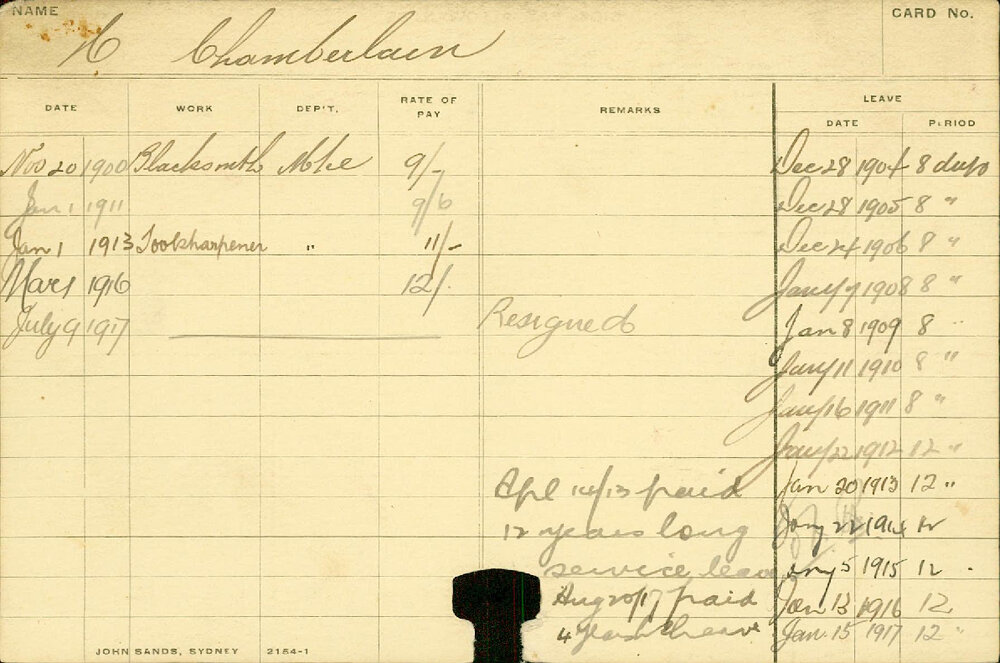 NAME
CARD No.
H Chamberlain
DATE WORK DEP'T. RATE OF PAY REMARKS LEAVE
DATE PERIOD
Nov 20 1900 Blacksmith 9/- Dec 28 1904 8 days
Jan 1 1911 9/6 Dec 28 1905 8 "
Jan 1 1913 Toolsharpener " 11/- Dec 24 1906 8 "
Mar 1 1916 12/. Jany 7 1908 8 "
July 9 1917 Resigned Jan 8 1909 8 "
Jany 11 1910 8 "
Jany 16 1911 8 "
Jany 22 1912 12 "
Apl 14/13 paid Jan 20 1913 12 "
12 years long Jany 22 1914 12
service leave Jany 5 1915 12 "
Aug 20/17 paid Jan 13 1916 12
4 years leave Jan. 15 1917 12 "
JOHN SANDS, SYDNEY 2154-1